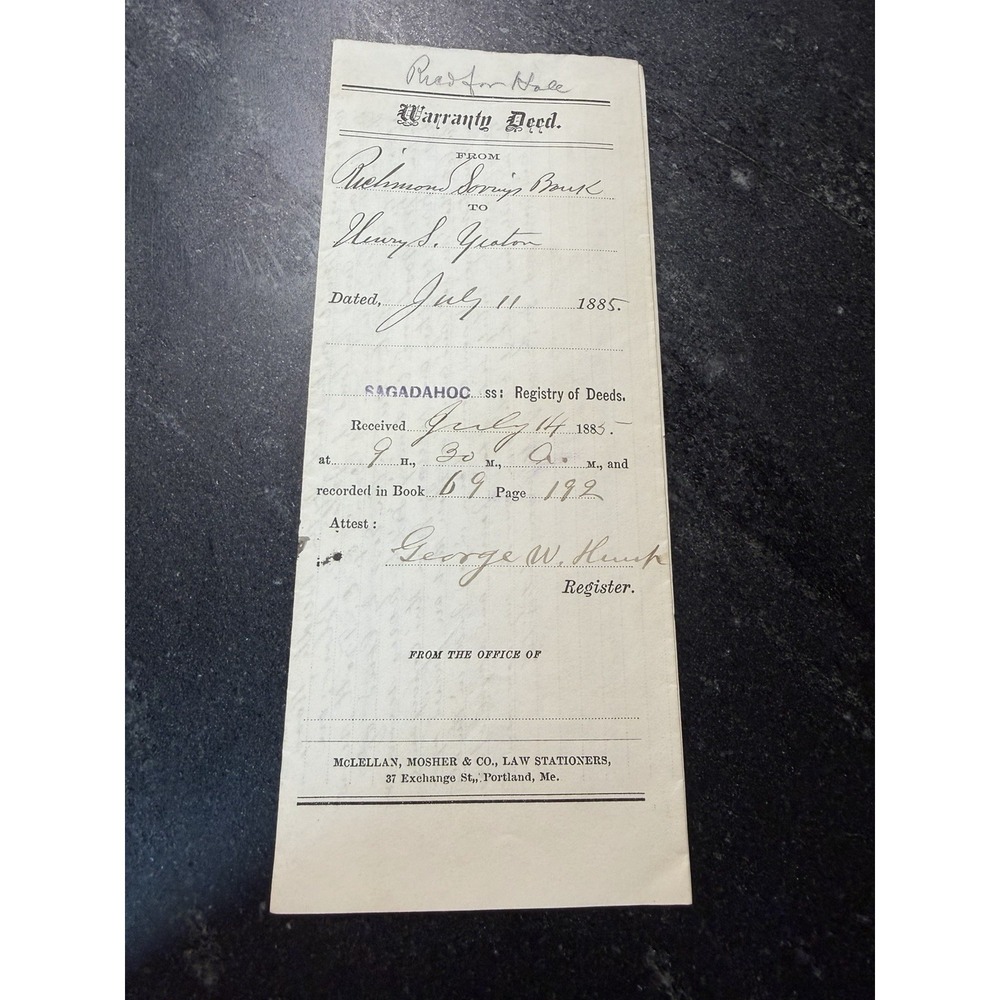 Warranty Deed.
FROM
Richmond Savings Bank
TO
Henry S. Yeaton
Dated, July 11 1885.
SAGADAHOC ss: Registry of Deeds.
Received July 14 1885-
at 9 H., 30 M., A. M., and
recorded in Book 69 Page 192
Attest:
George W.
Register.
FROM THE OFFICE OF
McLELLAN, MOSHER & CO., LAW STATIONERS,
37 Exchange St,, Portland, Me.